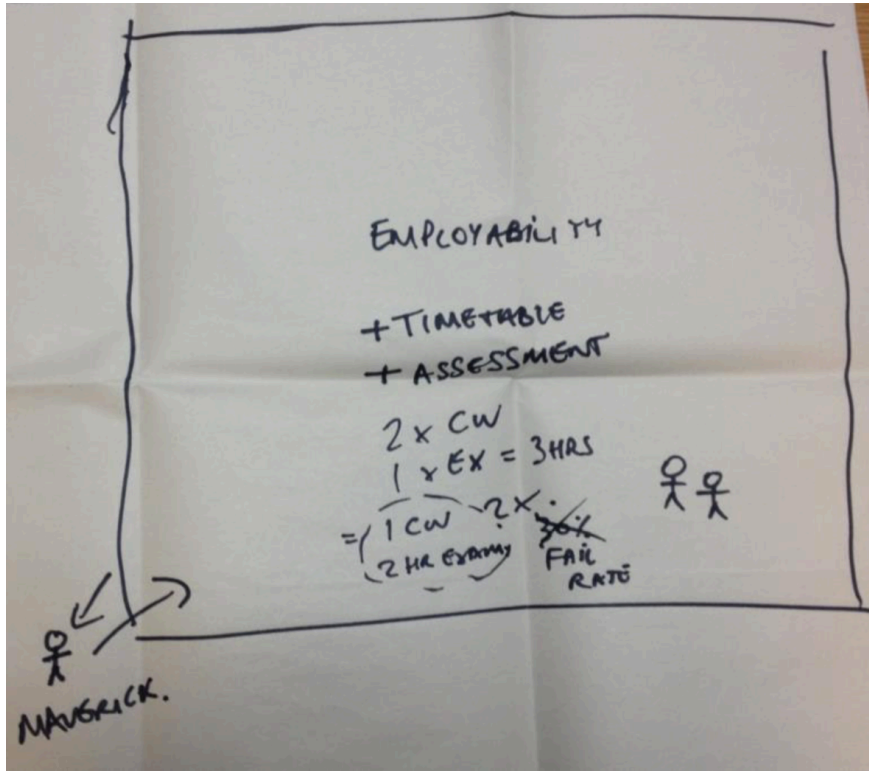 EMPLOYABILITY
+ TIMETABLE
+ ASSESSMENT
2 x CW
1 x EX = 3 HRS
= 1 CW 2x
2 HR EXAM 30%
FAIL
RATE
MAVERICK.